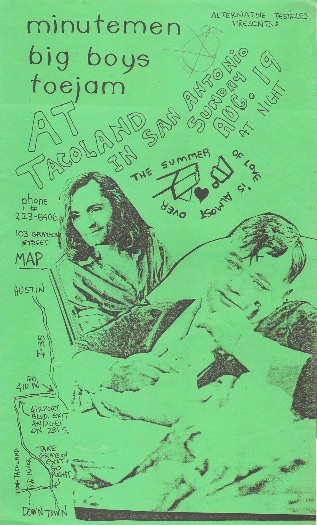 ALTERNATIVE TESTICLES
PRESENTS:
minutemen
big boys
toejam
AT
TACOLAND
IN SAN ANTONIO
SUNDAY
AUG. 19
AT NIGHT
THE SUMMER
OF LOVE IS ALMOST
OVER
phone
#
223-8406
103 GRAYSON
STREET
MAP
AUSTIN
410 W.
AIRPORT
BLVD. EXIT
AND GET
ON 281 S.
TAKE
GRAYSON
EXIT,
GO
RIGHT
TACOLAND
DOWNTOWN